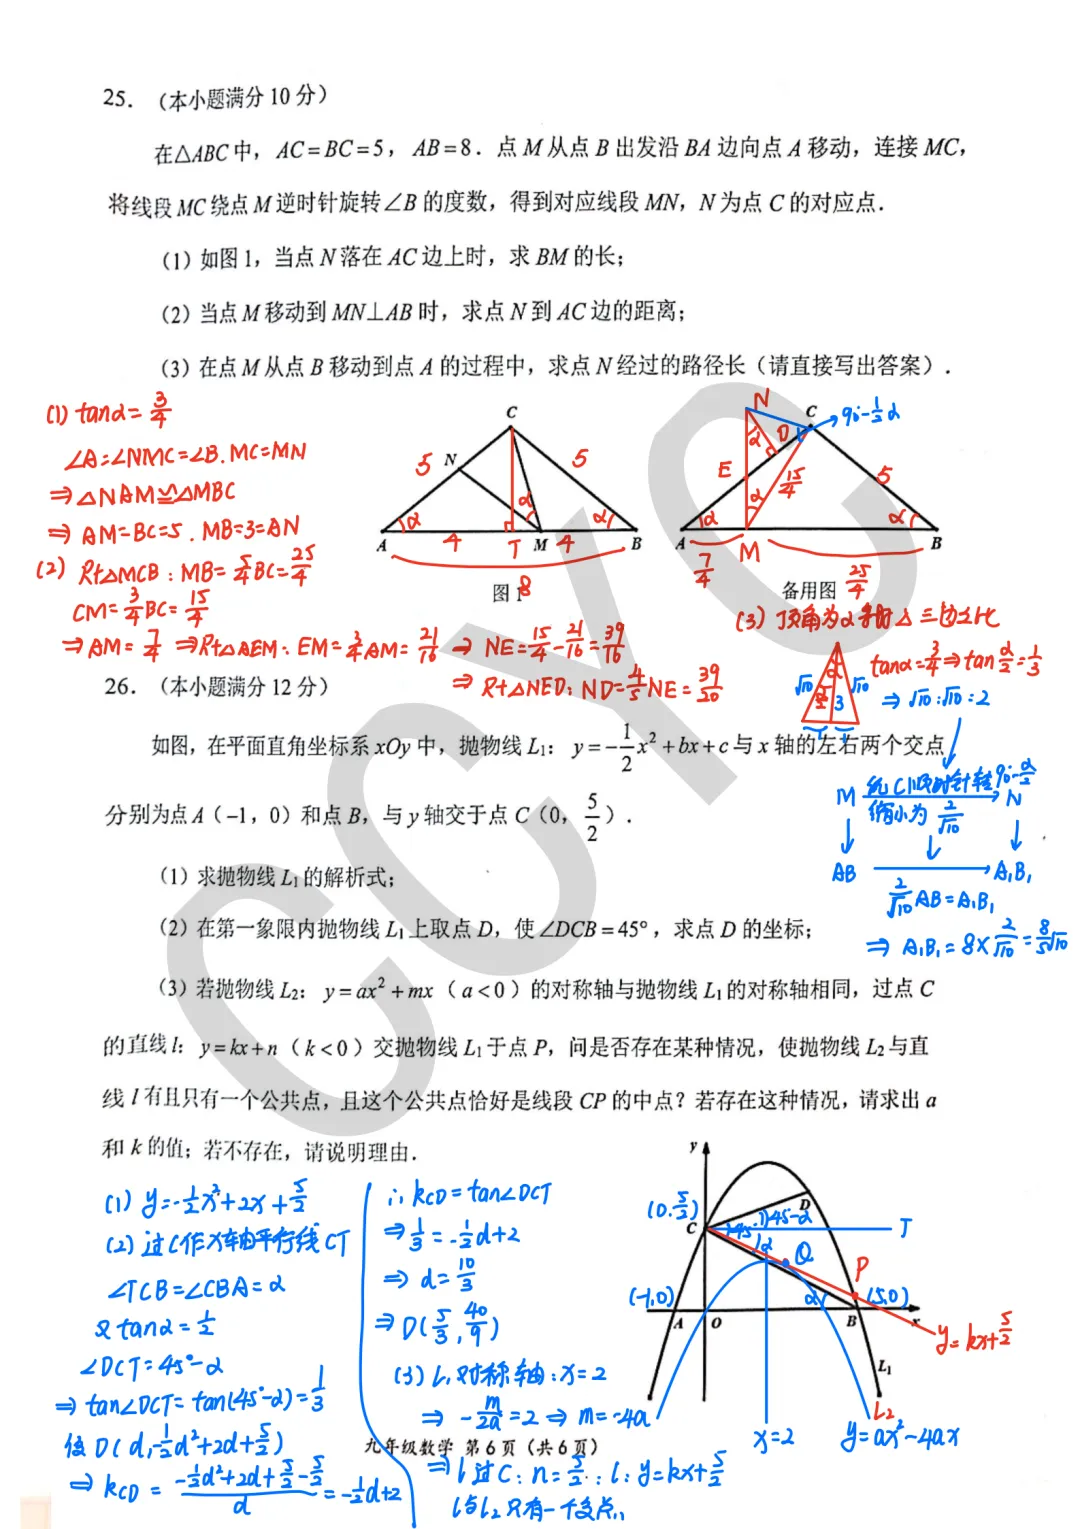 25. (本小题满分 10 分)
在△ABC 中, AC=BC=5, AB=8. 点 M 从点 B 出发沿 BA 边向点 A 移动, 连接 MC,
将线段 MC 绕点 M 逆时针旋转∠B 的度数, 得到对应线段 MN, N 为点 C 的对应点.
(1) 如图 1, 当点 N 落在 AC 边上时, 求 BM 的长;
(2) 当点 M 移动到 MN⊥AB 时, 求点 N 到 AC 边的距离;
(3) 在点 M 从点 B 移动到点 A 的过程中, 求点 N 经过的路径长 (请直接写出答案).
(1) tanα=3/4
∠A=∠NMC=∠B. MC=MN
⇒ △NAM≌△MBC
⇒ AM=BC=5. MB=3=AN
(2) Rt△MCB: MB=5/4BC=25/4
CM=3/4BC=15/4
⇒AM=7/4 ⇒Rt△AEM: EM=3/4AM=21/16 ⇒ NE=15/4-21/16=39/16
⇒ Rt△NED: ND=4/5NE=39/20
C
N
5
5
α
α
α
A
4
T
M
4
B
8
图 1
N
C
90-1/2α
α
D
E
15/4
5
α
α
α
A
M
B
7/4
25/4
备用图
(3) 顶角为α等腰△三边之比
tanα=3/4⇒tanα/2=1/3
⇒ √10:√10:2
√10
3
√10
M 绕C顺时针转90-α/2 N
缩小为 2/√10
AB A₁B₁
2/√10AB=A₁B₁
⇒ A₁B₁=8×2/√10=8/5√10
26. (本小题满分 12 分)
如图, 在平面直角坐标系 xOy 中, 抛物线 L₁: y=-1/2x²+bx+c 与 x 轴的左右两个交点
分别为点 A (-1, 0) 和点 B, 与 y 轴交于点 C (0, 5/2).
(1) 求抛物线 L₁ 的解析式;
(2) 在第一象限内抛物线 L₁ 上取点 D, 使∠DCB=45°, 求点 D 的坐标;
(3) 若抛物线 L₂: y=ax²+mx (a<0) 的对称轴与抛物线 L₁ 的对称轴相同, 过点 C
的直线 l: y=kx+n (k<0) 交抛物线 L₁ 于点 P, 问是否存在某种情况, 使抛物线 L₂ 与直
线 l 有且只有一个公共点, 且这个公共点恰好是线段 CP 的中点? 若存在这种情况, 请求出 a
和 k 的值; 若不存在, 请说明理由.
(1) y=-1/2x²+2x+5/2
(2) 过C作X轴平行线CT
∠TCB=∠CBA=α
又tanα=1/2
∠DCT=45°-α
⇒ tan∠DCT=tan(45°-α)=1/3
设D(d,-1/2d²+2d+5/2)
⇒ kCD = (-1/2d²+2d+5/2-5/2)/d =-1/2d+2
∴ kCD=tan∠DCT
⇒ 1/3=-1/2d+2
⇒ d=10/3
⇒ D(5/3,40/9)
(3) L₁对称轴:x=2
⇒ -m/2a=2 ⇒ m=-4a
⇒ l过C: n=5/2 ∴ l: y=kx+5/2
l与L₂只有一个交点,
y
(0.5/2)
C
D
T
45-α
α
Q
P
(-1,0)
α
(5,0)
A
O
B
x
y=kx+5/2
L₁
L₂
x=2
y=ax²-4ax
九年级数学 第 6 页 (共 6 页)
CCYC